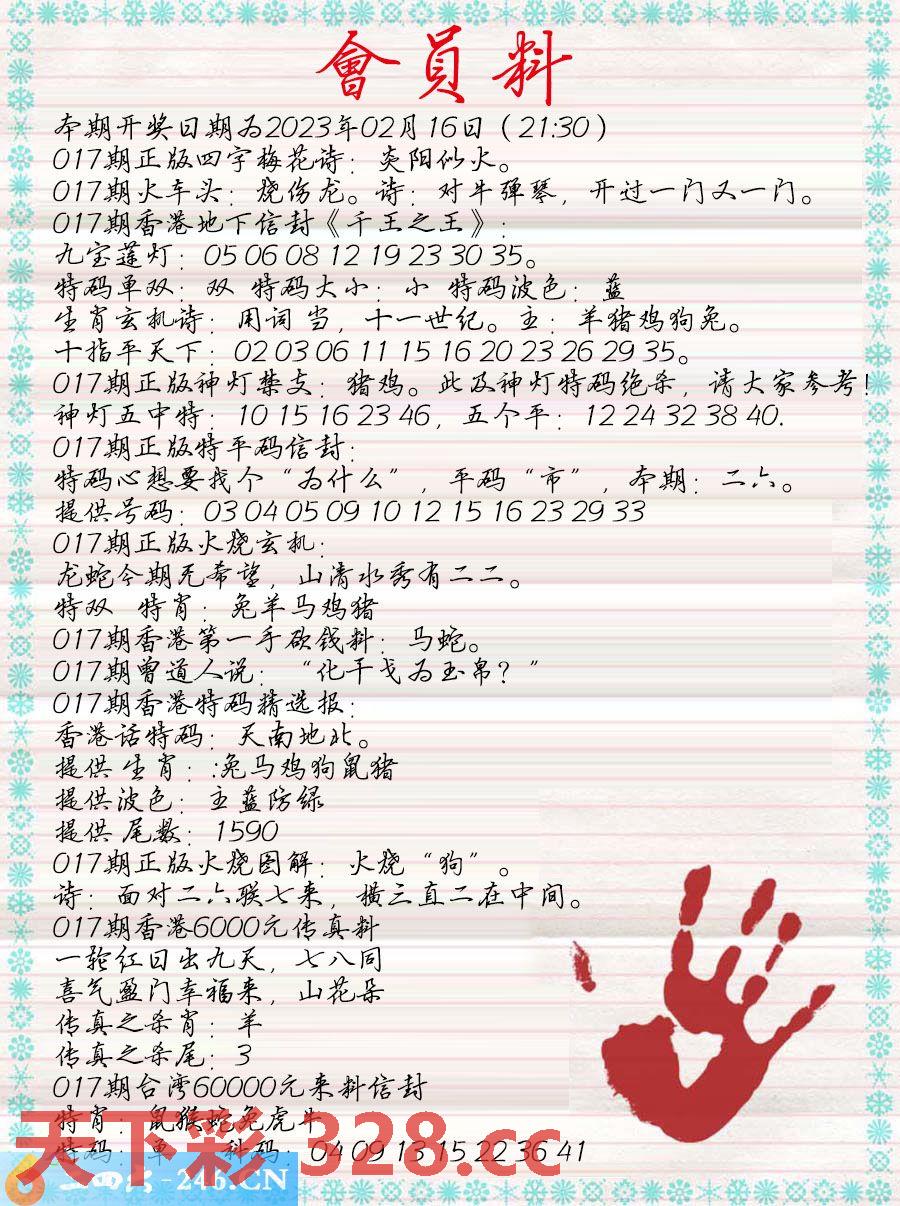 會員料
本期开奖日期为2023年02月16日（21:30）
017期正版四字梅花诗：炎阳似火。
017期火车头：烧伤龙。诗：对牛弹琴，开过一门又一门。
017期香港地下信封《千王之王》：
九宝莲灯：05 06 08 12 19 23 30 35。
特码单双：双 特码大小：小 特码波色：蓝
生肖玄机诗：用词 当，十一世纪。主：羊猪鸡狗兔。
十指平天下：02 03 06 11 15 16 20 23 26 29 35。
017期正版神灯禁支：猪鸡。此及神灯特码绝杀，请大家参考！
神灯五中特：10 15 16 23 46，五个平：12 24 32 38 40.
017期正版特平码信封：
特码心想要找个“为什么”，平码“市”，本期：二六。
提供号码：03 04 05 09 10 12 15 16 23 29 33
017期正版火烧玄机：
龙蛇今期无希望，山清水秀有二二。
特双 特肖：兔羊马鸡猪
017期香港第一手砍钱料：马蛇。
017期曾道人说：“化干戈为玉帛？”
017期香港特码精选报：
香港话特码：天南地北。
提供 生肖：:兔马鸡狗鼠猪
提供波色：主蓝防绿
提供 尾数：1590
017期正版火烧图解：火烧“狗”。
诗：面对二六联七来，横三直二在中间。
017期香港6000元传真料
一轮红日出九天，七八同
喜气盈门幸福来，山花朵
传真之杀肖：羊
传真之杀尾：3
017期台湾60000元来料信封
特肖：鼠猴蛇兔虎牛
特码：单 科码：04 09 13 15 22 36 41
天下彩 328.cc
二四六-246.CN